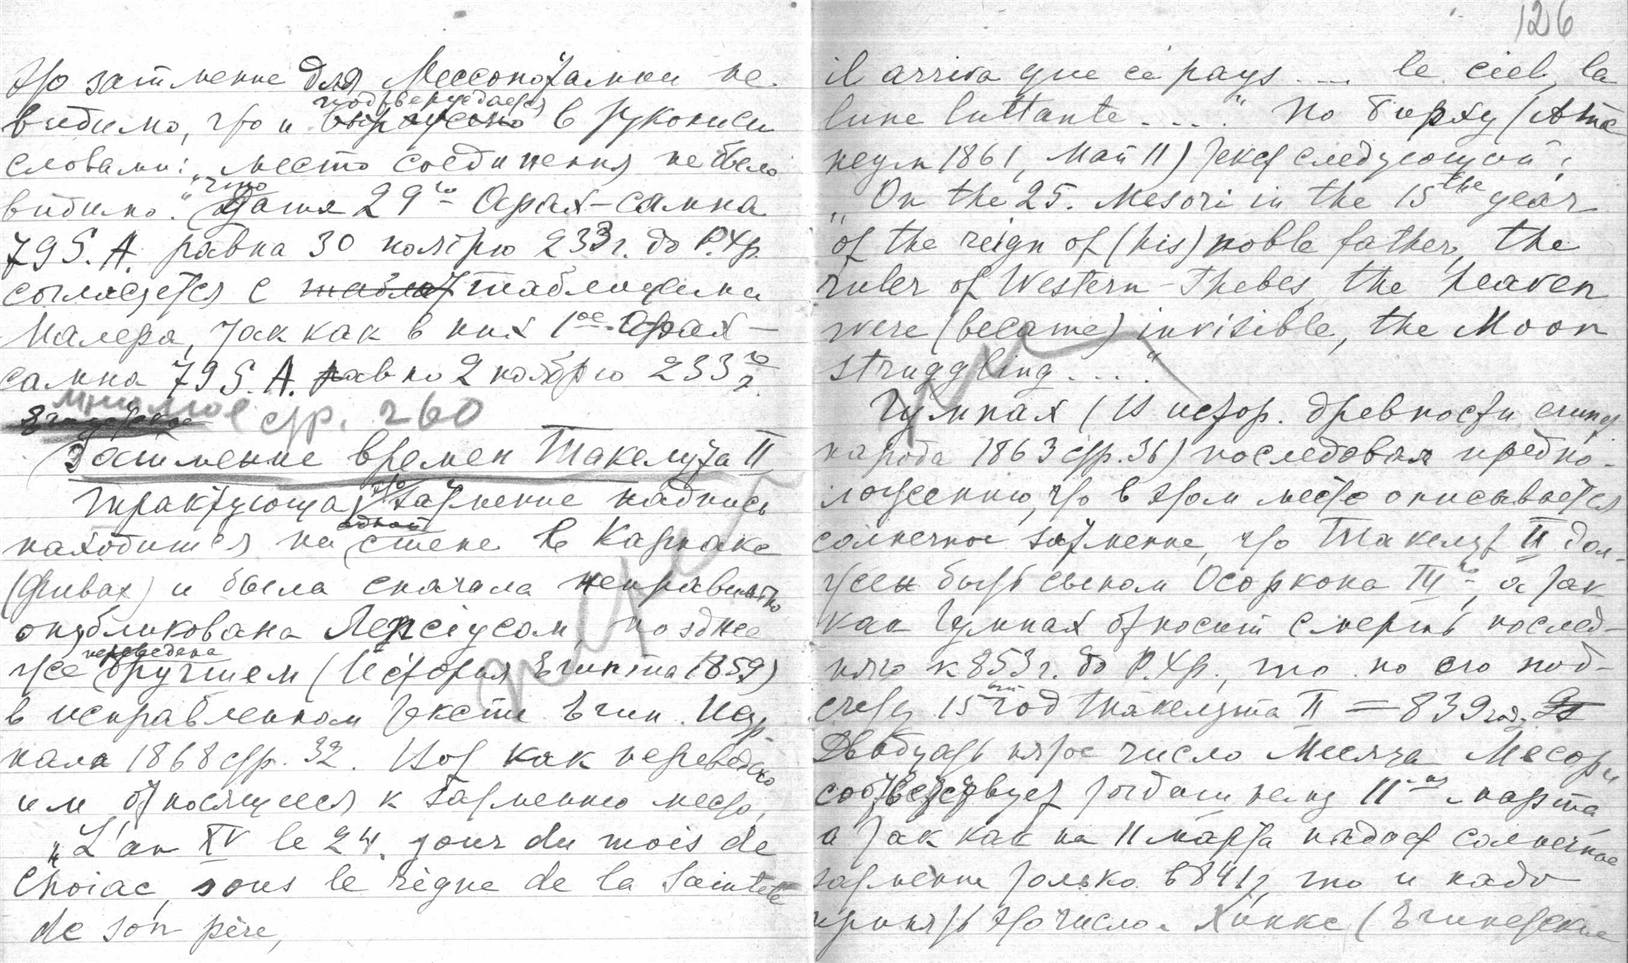 это затмение для Мессопотамии не-
видимо, что и подтверждается в рукописи
словами: „место соединения не было
видимо." Дата 29го Арах-самна
79 S.A. равна 30 ноябрю 233 г. до Р.Хр.
согласуется с таблицами
Малера, так как в них 1ое Арах-
самна 79 S.A. равно 2 ноябрю 233го г.
мнимое стр. 260
Затмение времен Такелута II
Трактующая это затмение надпись
находится на одной стене в Карнаке
(Фивах) и была сначала неправильно
опубликована Лепсіусом, позднее
же переведена Бругшем (История Египта 1859)
в исправленном тексте Египт. Жур-
нала 1868 стр. 32. Вот как переведено
им относящееся к затмению место,
„L'an XV le 24. jour du mois de
Choiac, sous le règne de la Sainteté
de son père,
126
il arriva que ce pays .... le ciel, la
lune luttante ...." По Бирху (Ате
неум 1861, Май 11) текст следующий:
„On the 25. Mesori in the 15the year
of the reign of (his) noble father, the
ruler of Western Thebes, the heaven
were (became) invisible, the Moon
struggling ...."
Гумпах (Истор. древности египт
народа 1863 стр. 36) последовал предпо-
ложению, что в этом месте описывается
солнечное затмение, что Такелут II дол-
жен быть сыном Осоркона III го, а так
как Гумпах относит смерть послед-
няго к 853 г. до Р.Хр., то по его под-
счету 15ый год Такелута II = 839 год.
Двадцать пятое число Месяца Месори
соответствует тогдашнему 11му марта
а так как на 11 марта падает солнечное
затмение только в 841 г, то и надо
принять это число. Хинкс (Египетские